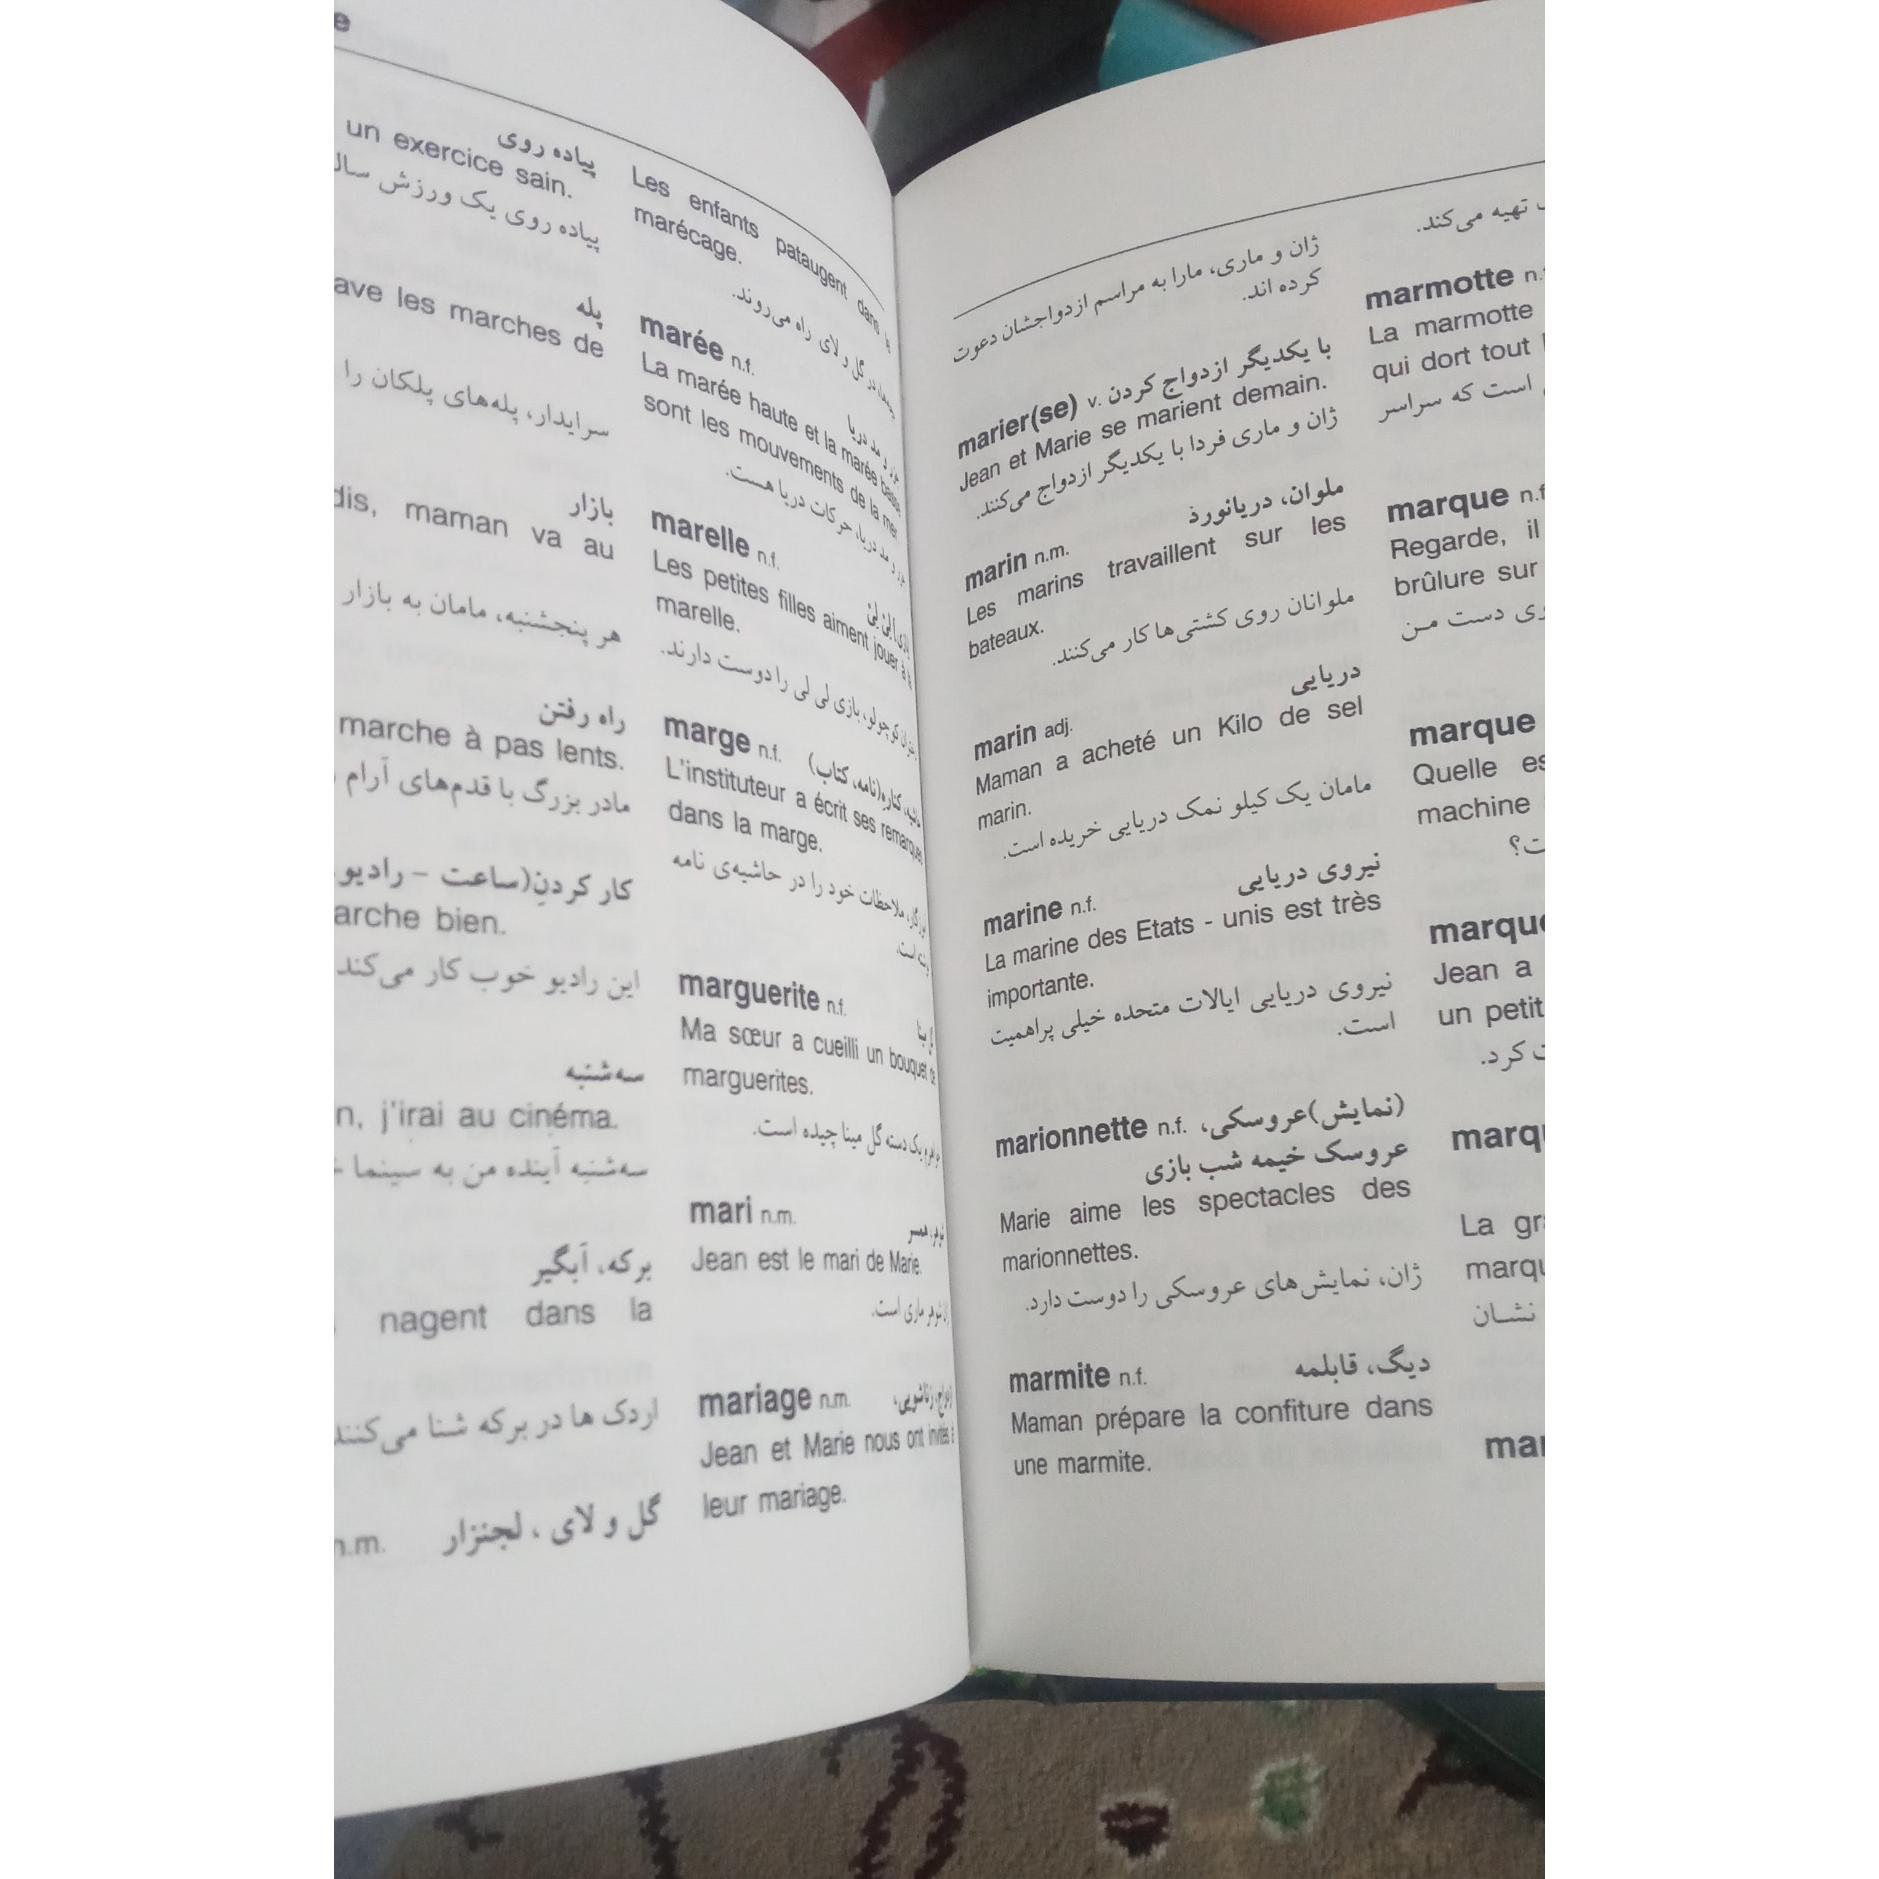 e
پیاده روی
un exercice sain.
پیاده روی یک ورزش
پله
ave les marches de
سرایدار، پله‌های پلکان را
بازار
dis, maman va au
هر پنجشنبه، مامان به بازار
راه رفتن
marche à pas lents.
مادر بزرگ با قدم‌های آرام
کار کردنِ(ساعت - رادیو
arche bien.
این رادیو خوب کار می‌کند
سه‌شنبه
n, j'irai au cinéma.
سه‌شنبه آینده من به سینما
برکه، آبگیر
nagent dans la
اردک ها در برکه شنا می‌کنند
n.m. گل و لای ، لجنزار
Les enfants pataugent dans le
marécage.
در گل و لای راه می‌روند.
marée n.f. جزر و مد دریا
La marée haute et la marée basse
sont les mouvements de la mer.
جزر و مد دریا، حرکات دریا هست.
marelle n.f.
Les petites filles aiment jouer à la
marelle.
کوچولو، بازی لی لی را دوست دارند.
marge n.f. حاشیه، کناره(نامه، کتاب)
L'instituteur a écrit ses remarques
dans la marge.
ملاحظات خود را در حاشیه‌ی نامه
است.
marguerite n.f.
Ma sœur a cueilli un bouquet de
marguerites.
یک دسته گل مینا چیده است.
mari n.m. شوهر، همسر
Jean est le mari de Marie.
شوهر ماری است.
mariage n.m. ازدواج، زناشویی،
Jean et Marie nous ont invités à
leur mariage.
ژان و ماری، مارا به مراسم ازدواجشان دعوت
کرده اند.
marier(se) v. با یکدیگر ازدواج کردن
Jean et Marie se marient demain.
ژان و ماری فردا با یکدیگر ازدواج می‌کنند.
marin n.m. ملوان، دریانورذ
Les marins travaillent sur les
bateaux.
ملوانان روی کشتی‌ها کار می‌کنند.
marin adj. دریایی
Maman a acheté un Kilo de sel
marin.
مامان یک کیلو نمک دریایی خریده است.
marine n.f. نیروی دریایی
La marine des Etats - unis est très
importante.
نیروی دریایی ایالات متحده خیلی پراهمیت
است.
marionnette n.f. (نمایش)عروسکی،
عروسک خیمه شب بازی
Marie aime les spectacles des
marionnettes.
ژان، نمایش‌های عروسکی را دوست دارد.
marmite n.f. دیگ، قابلمه
Maman prépare la confiture dans
une marmite.
تهیه می‌کند.
marmotte n.
La marmotte
qui dort tout
است که سراسر
marque n.f
Regarde, il
brûlure sur
دست مـن
marque
Quelle es
machine
ت؟
marque
Jean a
un petit
کرد.
marqu
La gra
marqu
نشـان
mar